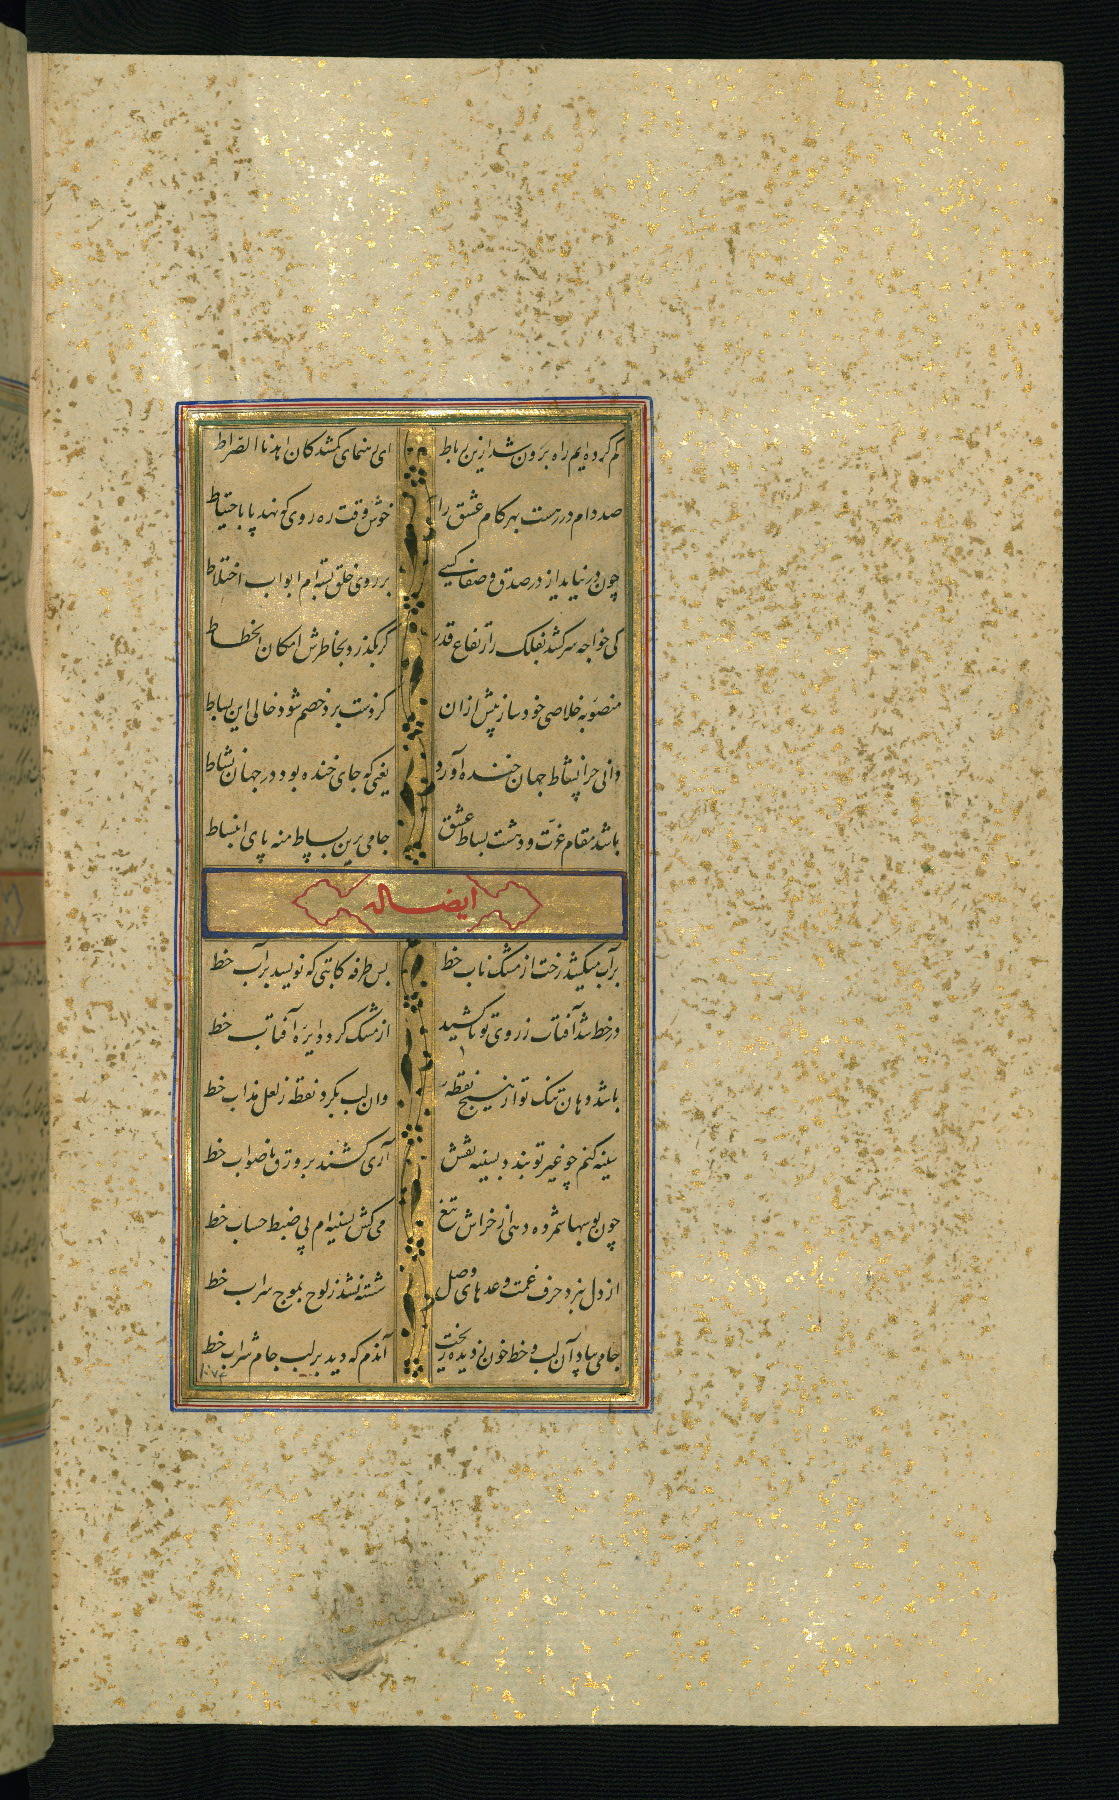 گم کرده ایم راه برون شد ازین رباط ای رهنمای گمشدکان اهدنا الصراط
صد دام در رهست بهر کام عشق را خوش وقت ره روی که نهد پا باحتیاط
چون در نیاید از در صدق و صفا کسی بر روی خلق بسته ام ابواب اختلاط
کی خواجه سر کشد بفلک ز ارتفاع قدر کر بکذرد بخاطرش امکان انحطاط
منصوبه خلاصی خود ساز پیش ازان کز دست برد خصم شود خالی این بساط
دانی چرا نشاط جهان خنده آورد یعنی که جای خنده بود در جهان نشاط
باشد مقام عزت و دهشت بساط عشق جامی برین بساط منه پای انبساط
ایضاله
بر آب میکشد رخت از مشک ناب خط بس طرفه کاتبی که نویسد بر آب خط
در خط شد آفتاب ز روی تو تا کشید از مشک کرد دایره آفتاب خط
باشد دهان تنک تو از هیچ نقطه وان لب بکرد نقطه ز لعل مذاب خط
سینه کنم چو غیر تو بندد بسینه نقش آری کشند بر ورق ناصواب خط
چون بوسها شمرده دهی از خراش تیغ می کش بسینه ام پی ضبط حساب خط
از دل نبرد حرف غمت وعدهای وصل شسته نشد ز لوح بموج سراب خط
جامی بیاد آن لب و خط خون ز دیده ریخت آندم که دید بر لب جام شراب خط